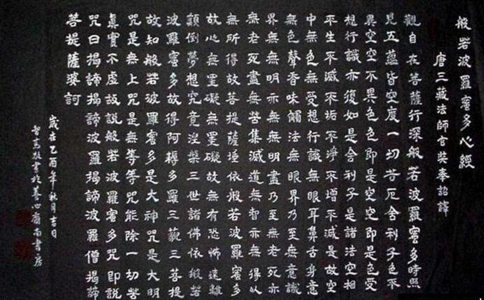 般若波羅蜜多心經
唐三藏法師玄奘奉詔譯
觀自在菩薩行深般若波羅蜜多時照
見五蘊皆空度一切苦厄舍利子色不
異空空不異色色即是空空即是色受
想行識亦復如是舍利子是諸法空相
不生不滅不垢不淨不增不減是故空
中無色無受想行識無眼耳鼻舌身意
無色聲香味觸法無眼界乃至無意識
界無無明亦無無明盡乃至無老死亦
無老死盡無苦集滅道無智亦無得以
無所得故菩提薩埵依般若波羅蜜多
故心無罣礙無罣礙故無有恐怖遠離
顛倒夢想究竟涅槃三世諸佛依般若
波羅蜜多故得阿耨多羅三藐三菩提
故知般若波羅蜜多是大神咒是大明
咒是無上咒是無等等咒能除一切苦
真實不虛故說般若波羅蜜多咒即說
咒曰揭諦揭諦波羅揭諦波羅僧揭諦
菩提薩婆訶
歲在乙酉年秋月吉日